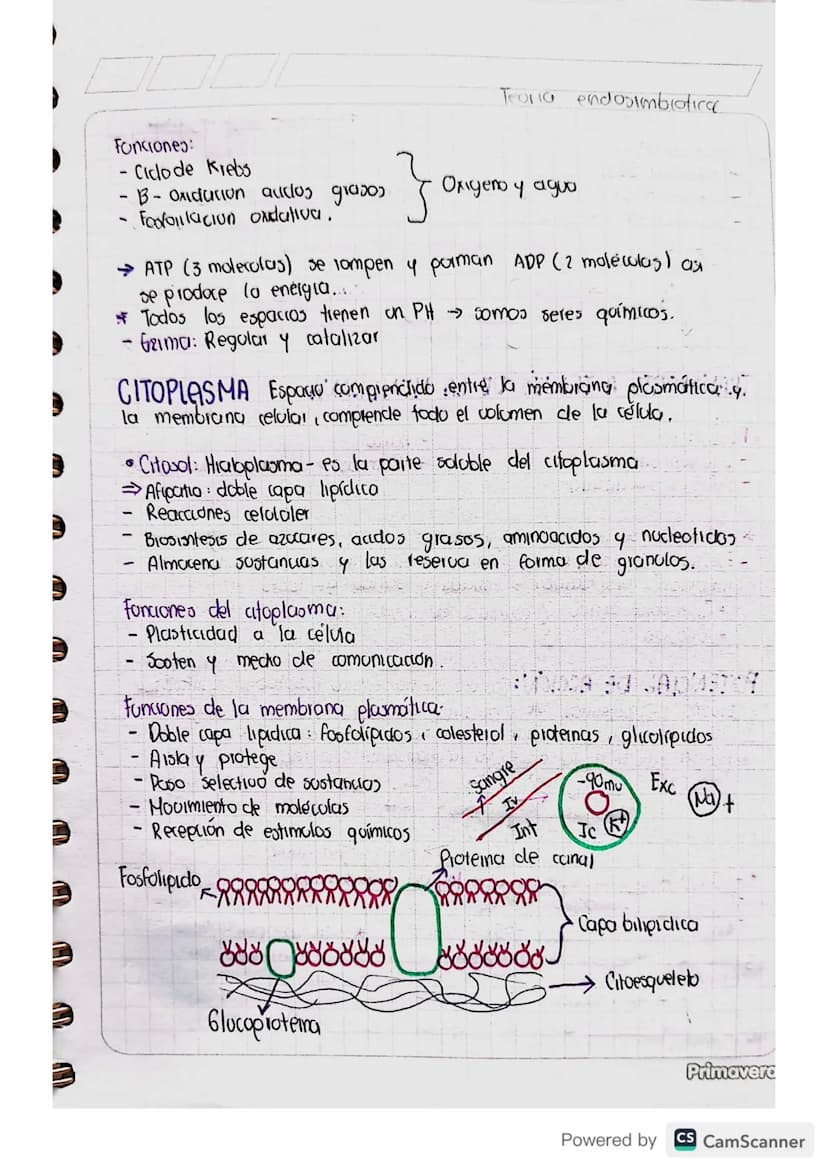 Teoria endosimbiotica
Funciones:
- Ciclo de Krebs
- B- Oxidación acidos grasos
- Fosforilacion oxidativa.
Oxigeno y agua
→ ATP (3 moleculas) se rompen y forman ADP (2 moléculas) asi
se produce la energia...
* Todos los espacios tienen un PH → somos seres químicos.
- Enzima: Regular y catalizar
CITOPLASMA Espacio comprendido entre la membrana plasmática y
la membrana celular, comprende todo el volumen de la célula.
• Citosol: Hialoplasma - es la parte soluble del citoplasma
⇒ Afipatio: doble capa lipídico
- Reacciones celululer
- Biosintesis de azucares, acidos grasos, aminoacidos y nucleotidos
- Almacena sustancias y las reserva en forma de granulos.
Funciones del citoplasma:
- Plasticidad a la célula
- Sosten y medio de comunicación.
POTENCIAL DE ACCIÓN:
Funciones de la membrana plasmática:
- Doble capa lipidica: fosfolípidos, colesterol, proteinas, glicolípidos
- Aisla y protege
- Paso selectivo de sustancias
- Movimiento de moléculas
- Recepción de estimulos químicos
Sangre
Iv
Int
-90mv
Ic K+
Exc
Na+
Proteina de canal
Fosfolipido
Capa bilipidica
Citoesqueleto
Glucoproteina
Primavera
Powered by CS CamScanner